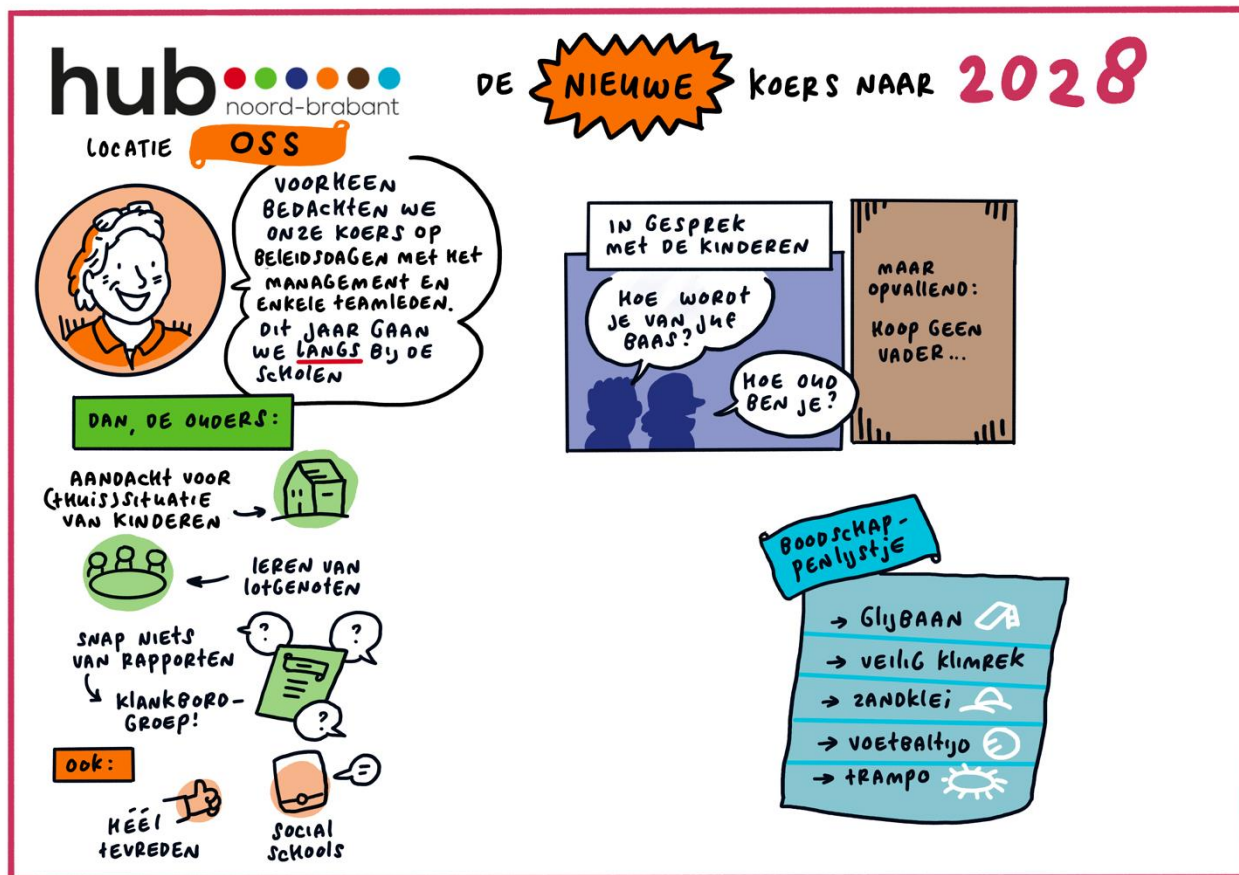 hub
noord-brabant
LOCATIE OSS
DE NIEUWE KOERS NAAR 2028
VOORHEEN
BEDACHTEN WE
ONZE KOERS OP
BELEIDSDAGEN MET HET
MANAGEMENT EN
ENKELE TEAMLEDEN.
DIT JAAR GAAN
WE LANGS BIJ DE
SCHOLEN
DAN, DE OUDERS:
AANDACHT VOOR
(THUIS)SITUATIE
VAN KINDEREN
LEREN VAN
LOTGENOTEN
SNAP NIETS
VAN RAPPORTEN
?
?
?
KLANKBORD-
GROEP!
OOK:
HÉÉL
TEVREDEN
SOCIAL
SCHOOLS
IN GESPREK
MET DE KINDEREN
HOE WORDT
JE VAN JUF
BAAS?
HOE OUD
BEN JE?
MAAR
OPVALLEND:
KOOP GEEN
VADER...
BOODSCHAP-
PENLIJSTJE
→ GLIJBAAN
→ VEILIG KLIMREK
→ ZANDKLEI
→ VOETBALTIJD
→ TRAMPO